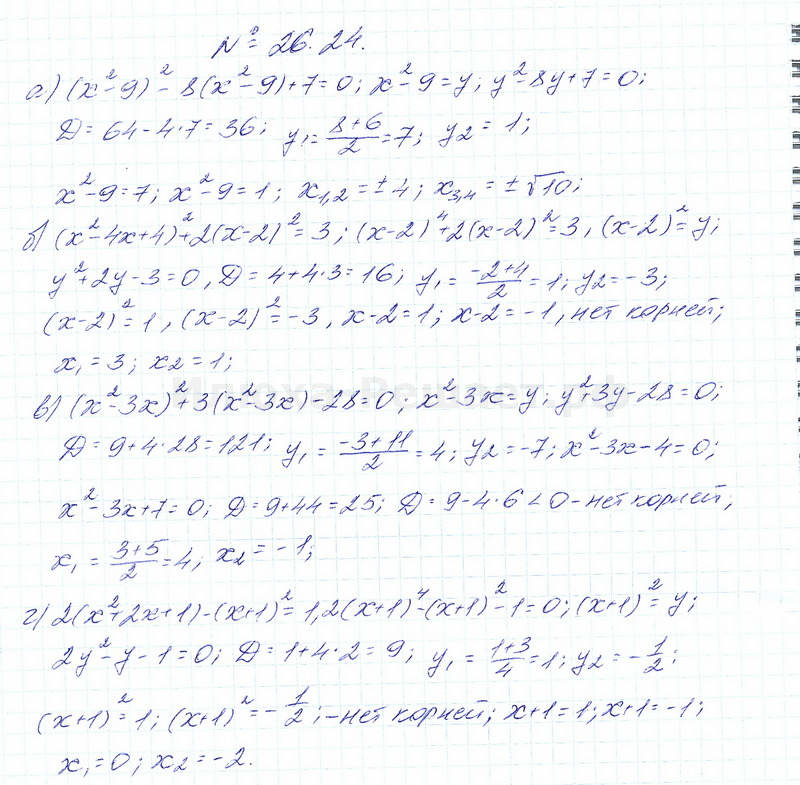 № 26.24.
а) (x²-9)²-8(x²-9)+7=0; x²-9=y; y²-8y+7=0;
D=64-4·7=36; y₁=(8+6)/2=7; y₂=1;
x²-9=7; x²-9=1; x₁,₂=±4; x₃,₄=±√10;
б) (x²-4x+4)²+2(x-2)²=3; (x-2)⁴+2(x-2)²=3, (x-2)²=y;
y²+2y-3=0, D=4+4·3=16; y₁=(-2+4)/2=1; y₂=-3;
(x-2)²=1, (x-2)²=-3, x-2=1; x-2=-1, нет корней;
x₁=3; x₂=1;
в) (x²-3x)²+3(x²-3x)-28=0; x²-3x=y; y²+3y-28=0;
D=9+4·28=121; y₁=(-3+11)/2=4; y₂=-7; x²-3x-4=0;
x²-3x+7=0; D=9+44=25; D=9-4·6<0-нет корней;
x₁=(3+5)/2=4; x₂=-1;
г) 2(x²+2x+1)-(x+1)²=1, 2(x+1)⁴-(x+1)²-1=0; (x+1)²=y;
2y²-y-1=0; D=1+4·2=9; y₁=(1+3)/4=1; y₂=-1/2;
(x+1)²=1; (x+1)²=-1/2; -нет корней; x+1=1; x+1=-1;
x₁=0; x₂=-2.